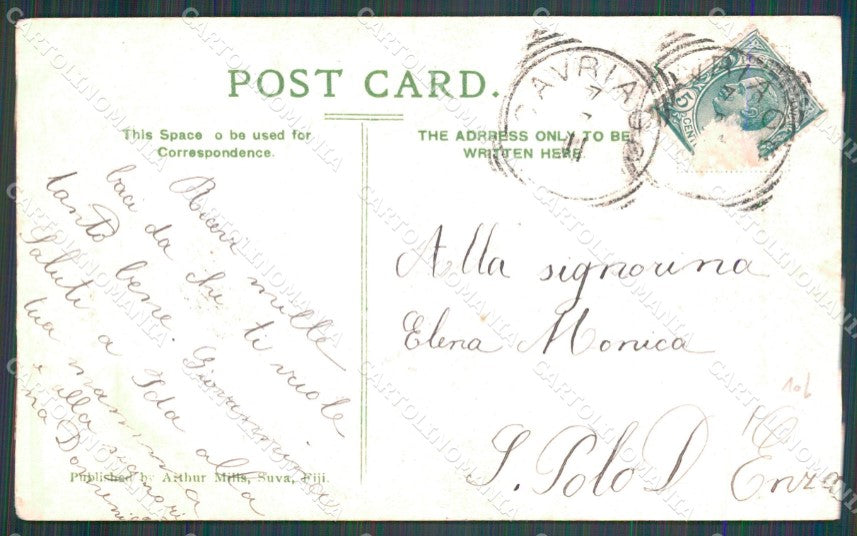 POST CARD.
This Space o be used for
Correspondence.
THE ADRRESS ONLY TO BE
WRITTEN HERE
GAVRIA
11
5 CENT
Ricevi mille
baci da chi ti vuole
tanto bene. Giovannina
Saluti a Ida alla
tua mamma
e alla
Alla signorina
Elena Monica
S. Polo D Enza
Published by Arthur Mills, Suva, Fiji.
CARTOLINOMANIA